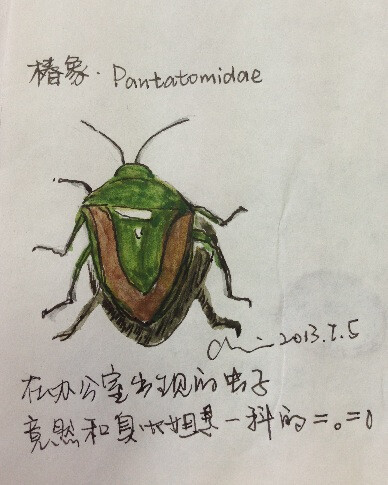 椿象. Pantatomidae
2013.7.5
在办公室出现的虫子
竟然和臭大姐是一科的=。=0